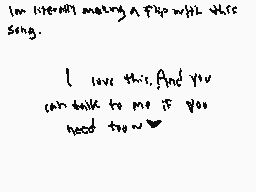 Im literally making a flip with this
song.
I love this. And you
can talk to me if you
need too ♥